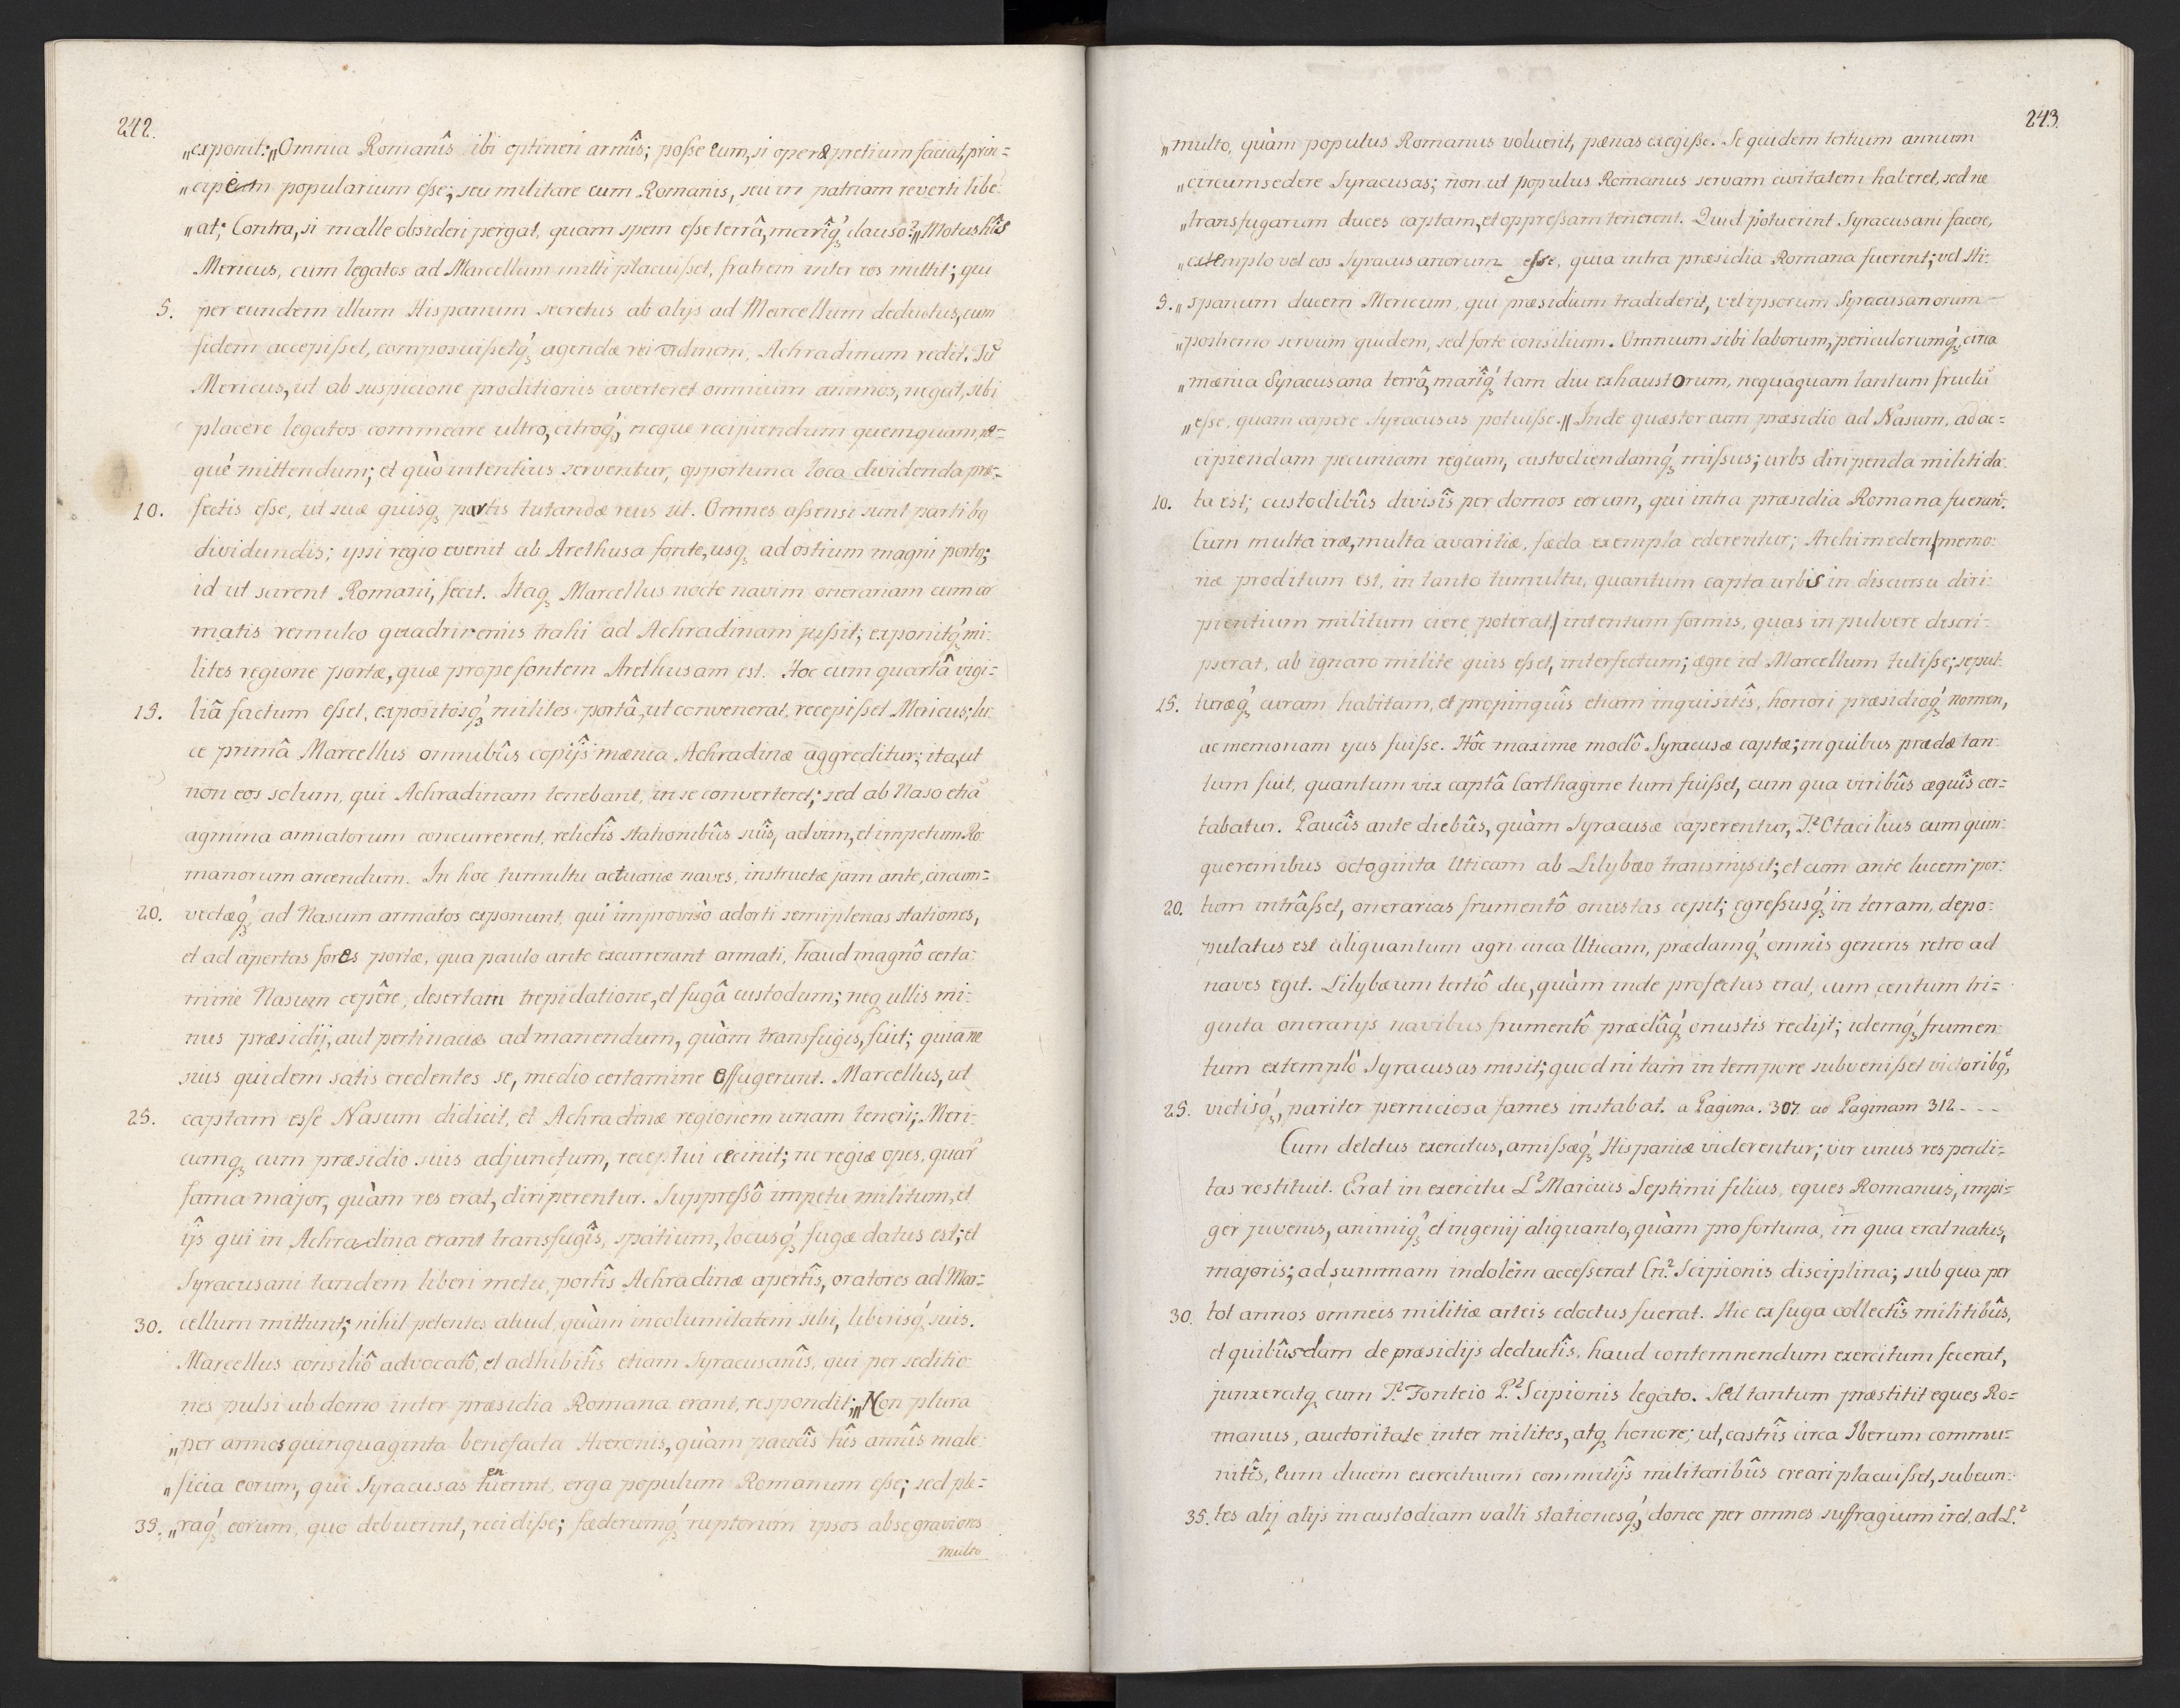 242.
„exponit: „Omnia Romanîs ibi optineri armîs; poſse eum, si operæpretium faciat, prin=
„cipem popularium eſse; seu militare cum Romanis, seu in patriam reverti libe:
„at; Contra, si malle obsideri pergat, quam spem eſse terrâ, mariq́ȝ clauso? „Motus hîs
Mericus, cum legatos ad Marcellum mitti placuiſset, fratrem inter eos mittit; qui
5. per eundem illum Hispanum secretus ab alijs ad Marcellum deductus, cum
fidem accepiſset, composuiſsetq́ȝ agendæ rei ordinem, Achradinam redit. Tū
Mericus, ut ab suspicione proditionis averteret omnium animos, negat, sibi
placere legatos commeare ultro, citroq́ȝ, neque recipiendum quemquam, ne=
què mittendum; et quò intentius serventur, opportuna loca dividenda præ=
10. fectis eſse, ut suæ quisqȝ partis tutandæ reus sit. Omnes aſsensi sunt partibq
dividundis; ipsi regio evenit ab Arethusa fonte, usqȝ ad ostium magni portq;
id ut scirent Romani, fecit. Itaqȝ Marcellus nocte navim onerariam cum ar
matis remulco quadriremis trahi ad Achradinam juſsit; exponitq́ȝ mi:
lites regione portæ, quæ prope fontem Arethusam est. Hoc cum quartâ vigi=
15. liâ factum eſset, expositosq́ȝ milites portâ, ut convenerat, recepiſset Mericus; lu:
ce primâ Marcellus omnibûs copijs mænia Achradinæ aggreditur; ita, ut
non eos solum, qui Achradinam tenebant, in se converteret; sed ab Naso etiā
agmina armatorum concurrerent, relictîs stationibûs suîs, ad vim, et impetum Ro:
manorum arcendum. In hoc tumultu actuariæ naves, instructæ jam ante, circum=
20. vectæq́ȝ ad Nasum armatos exponunt, qui improvisò adorti semiplenas stationes,
et ad apertas fores portæ, qua paulo ante excurrerant armati, haud magnô certa:
mine Nasum cepêre, desertam trepidatione, et fugâ custodum; neqȝ ullis mi:
nus præsidij, aut pertinaciæ ad manendum, quàm transfugis, fuit; quia ne
suis quidem satis credentes se, medio certamine effugerunt. Marcellus, ut
25. captam eſse Nasum didicit, et Achradinæ regionem unam teneri; Meri:
cumqȝ cum præsidio suis adjunctum, receptui cecinit; ne regiæ opes, quar̄
fama major, quàm res erat, diriperentur. Suppreſsô impetu militum, et
ijs qui in Achradina erant transfugîs, spatium, locusq́ȝ fugæ datus est; et
Syracusani tandem liberi metu, portîs Achradinæ apertîs, oratores ad Mar=
30. cellum mittunt; nihil petentes aliud, quàm incolumitatem sibi, liberisq́ȝ suis.
Marcellus consiliô advocatô, et adhibitîs etiam Syracusanîs, qui per seditio:
nes pulsi ab domo inter præsidia Romana erant, respondit; „Non plura
„per annos quinquaginta benefacta Hieronis, quàm paucîs hîs annîs male:
„ficia eorum, qui Syracusas tenuerint, erga populum Romanum eſse; sed ple=
35. „raq́ȝ eorum, quo debuerint, recidiſse; fæderumq́ȝ ruptorum ipsos ab se graviores
multo
243.
„multo, quàm populus Romanus voluerit, pænas exegiſse. Se quidem tertium annum
„circumsedere Syracusas; non ut populus Romanus servam civitatem haberet, sed ne
„transfugarum duces captam, et oppreſsam tenerent. Quid potuerint Syracusani facere,
„exemplo vel eos Syracusanorum eſse, quia intra præsidia Romana fuerint; vel Hi:
5. „spanum ducem Mericum, qui præsidium tradiderit, vel ipsorum Syracusanorum
„postremo serum quidem, sed forte consilium. Omnium sibi laborum, periculorumq́ȝ, circa
„mænia Syracusana terrâ, mariq́ȝ tam diu exhaustorum, nequaquam tantum fructū
„eſse, quam capere Syracusas potuiſse. „Inde quæstor cum præsidio ad Nasum, ad ac=
cipiendam pecuniam regiam, custodiendamq́ȝ miſsus; urbs diripienda militi da:
10. ta est; custodibûs divisîs per domos eorum, qui intra præsidia Romana fuerunt.
Cum multa iræ, multa avaritiæ, fæda exempla ederentur; Archimedem/memo:
riæ proditum est, in tanto tumultu, quantum capta urbis in discursu diri:
pientium militum ciere poterat/intentum formis, quas in pulvere descri:
pserat, ab ignaro milite quis eſset, interfectum; ægre id Marcellum tuliſse; sepul:
15. turæq́ȝ curam habitam, et propinquîs etiam inquisitîs, honori præsidioq́ȝ nomen,
ac memoriam ejus fuiſse. Hôc maxime modô Syracusæ captæ; in quibus prædæ tan:
tum fuit, quantum vix captâ Carthagine tum fuiſset, cum qua viribûs æquîs cer=
tabatur. Paucîs ante diebûs, quàm Syracusæ caperentur, T.² Otacilius cum quin:
queremibus octoginta Uticam ab Lilybæo transmisit; et cum ante lucem por:
20. tum intrâſset, onerarias frumentô onustas cepit; egreſsusq́ȝ in terram, depo:
pulatus est aliquantum agri circa Uticam, prædamq́ȝ omnis generis retro ad
naves egit. Lilybæum tertiô die, quàm inde profectus erat, cum centum tri=
ginta onerarijs navibus frumentô prædâq́ȝ onustis redijt; idemq́ȝ frumen:
tum extemplò Syracusas misit; quod ni tam in tempore subveniſset victoribq́,
25. victisq́ȝ, pariter perniciosa fames instabat. a Pagina. 307 ad Paginam 312 - - -
Cum deletus exercitus, amiſsæq́ȝ Hispaniæ viderentur; vir unus res perdi=
tas restituit. Erat in exercitu L² Marcius Septimi filius, eques Romanus, impi=
ger juvenis, animiq́ȝ et ingenij aliquanto, quàm pro fortuna, in qua erat natus,
majoris; ad summam indolem acceſserat Cn.² Scipionis disciplina; sub qua per
30. tot annos omneis militiæ arteis edoctus fuerat. Hic ex fuga collectîs militibûs,
et quibûsdam de præsidijs deductîs, haud contemnendum exercitum fecerat,
junxeratqȝ cum T.² Fonteio P.² Scipionis legato. Sed tantum præstitit eques Ro=
manus, auctoritate inter milites, atqȝ honore; ut, castrîs circa Iberum commu=
nitîs, eum ducem exercituum comitijs militaribûs creari placuiſset, subeun:
35. tes alij alijs in custodiam valli stationesq́ȝ, donec per omnes suffragium iret, ad L.²